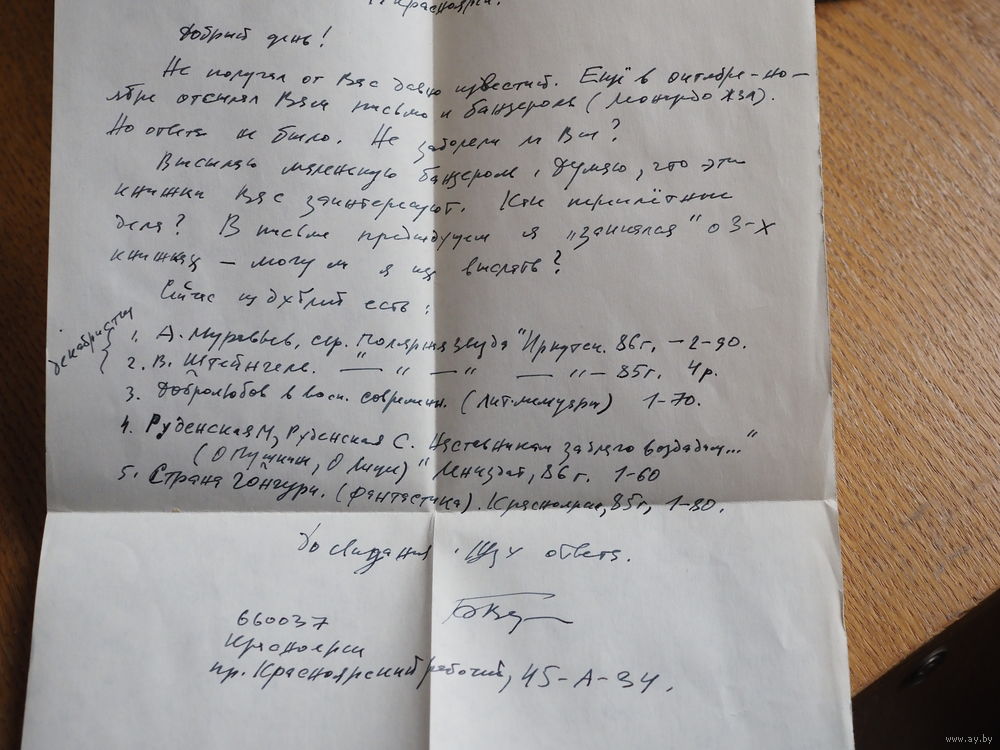 г. Красноярск.
Добрый день!
Не получал от Вас давно известий. Ещё в октябре-но-
ябре отсылал Вам письмо и бандероль (Леонардо ЖЗЛ).
Но ответа не было. Не заболели ли Вы?
Высылаю маленькую бандероль. Думаю, что эти
книжки Вас заинтересуют. Как переплётные
дела? В письме предыдущем я „заикался" о 3-х
книжках – могу ли я их выслать?
Сейчас из дублей есть:
декабристы
1. А. Муравьев, сер. Полярная звезда" Иркутск. 86г. – 2-90.
2. В. Штейнгель. —— " —— " —— " — 85г. 4р.
3. Добролюбов в восп. современ. (лит. мемуары) 1-70.
4. Руденская М, Руденская С. Наставникам за благо воздадим..."
(О Пушкин, О Лицей) " Лениздат, 86г. 1-60
5. Страна Гонгури. (фантастика). Красноярск, 85г, 1-80.
До свидания. Жду ответа.
660037
Красноярск
пр. Красноярский рабочий, 45-А-34.
www.ay.by